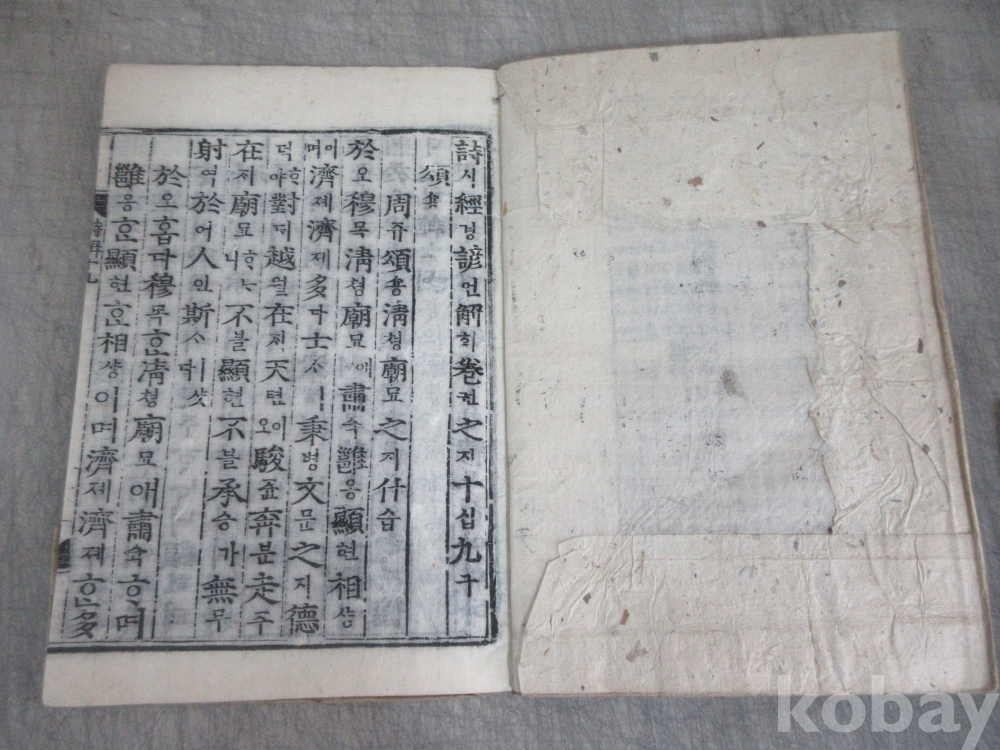 詩시經경諺언解ᄒᆡ卷권之지十십九구
頌숑
周쥬頌숑淸쳥廟묘之지什습
於오穆목淸쳥廟묘애肅슉雝옹顯현相샹
이며濟졔濟졔多다士ᄉᆞㅣ秉병文문之지德
덕ᄒᆞ야對ᄃᆡ越월在ᄌᆡ天텬이오駿쥰奔분走주
在ᄌᆡ廟묘ᄒᆞᄂᆞ니不블顯현不블承승가無무
射역於어人인斯ᄉᆞ뎌샷
於오홉다穆목ᄒᆞᆫ淸쳥廟묘애肅슉ᄒᆞ며
雝옹ᄒᆞᆫ顯현ᄒᆞᆫ相샹이며濟졔濟졔ᄒᆞᆫ多
kobay